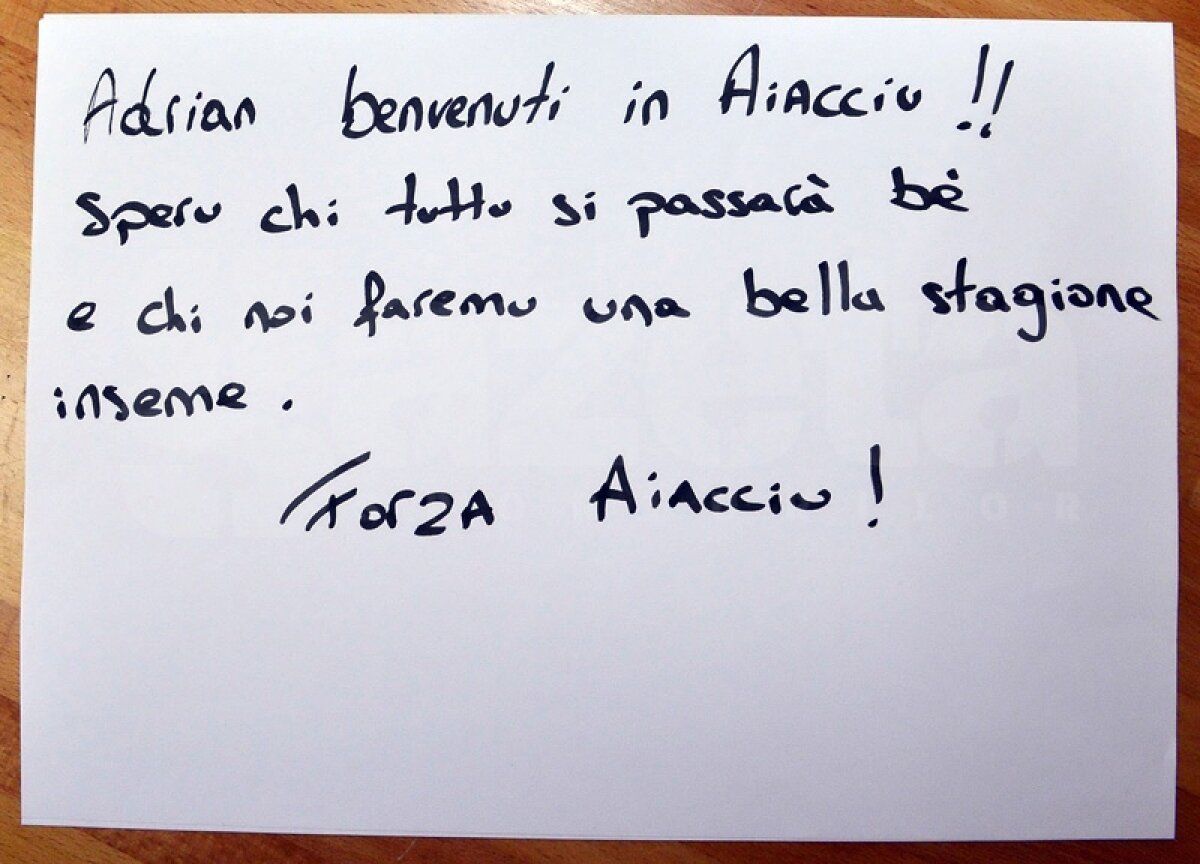 Adrian benvenuti in Aiacciu !!
Speru chi tuttu si passarà bè
e chi noi faremu una bella stagione
inseme .
Forza Aiacciu !